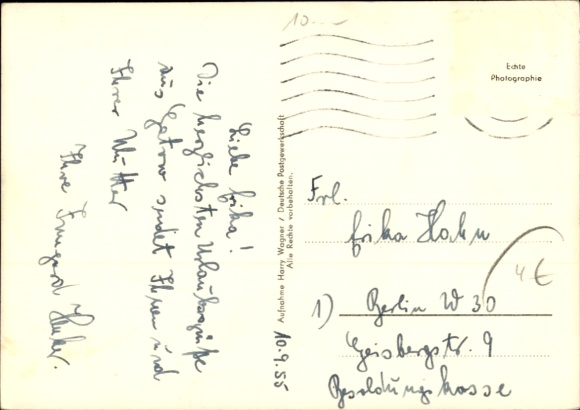 10.-
Liebe Erika!
Die herzlichsten Urlaubsgrüße
aus Gatow sendet Ihnen und
Ihrer Mutter
Ihre Irmgard
10.9.55
Aufnahme Harry Wagner / Deutsche Postgewerkschaft
Alle Rechte vorbehalten.
Echte
Photographie
Frl.
Erika Hahn
4 €
1) Berlin W 30
Geisbergstr. 9
Besoldungskasse